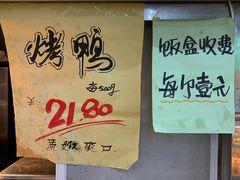 烤鸭
每500g
21.80
嫩爽口
饭盒收费
每个壹元